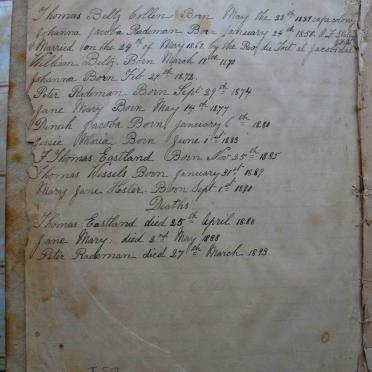 Thomas Beltz Collen Born May the 28th 1837 cape colony
Johanna Jacoba Rademan Born January 24th 1850.
Married on the 24th of May 1867. by the Rev. du Toit at Jacobsdal
William Beltz. Born March 18th 1870
Johanna Born Feb 27th 1872.
Peter Rademan Born Sept 29th 1874
Jane Mary Born May 14th 1877
Dinah Jacoba Born January 6th 1880
Maria Born June 1st 1883
F Thomas Eastland Born Nov 25th 1885
Thomas Wessels Born January 31st 1889
Mary Jane Hester. Born Sept 1st 1890
Deaths
Thomas Eastland died 25th April 1886
Jane Mary. died 2nd May 1888
Peter Rademan died 27th March 1893